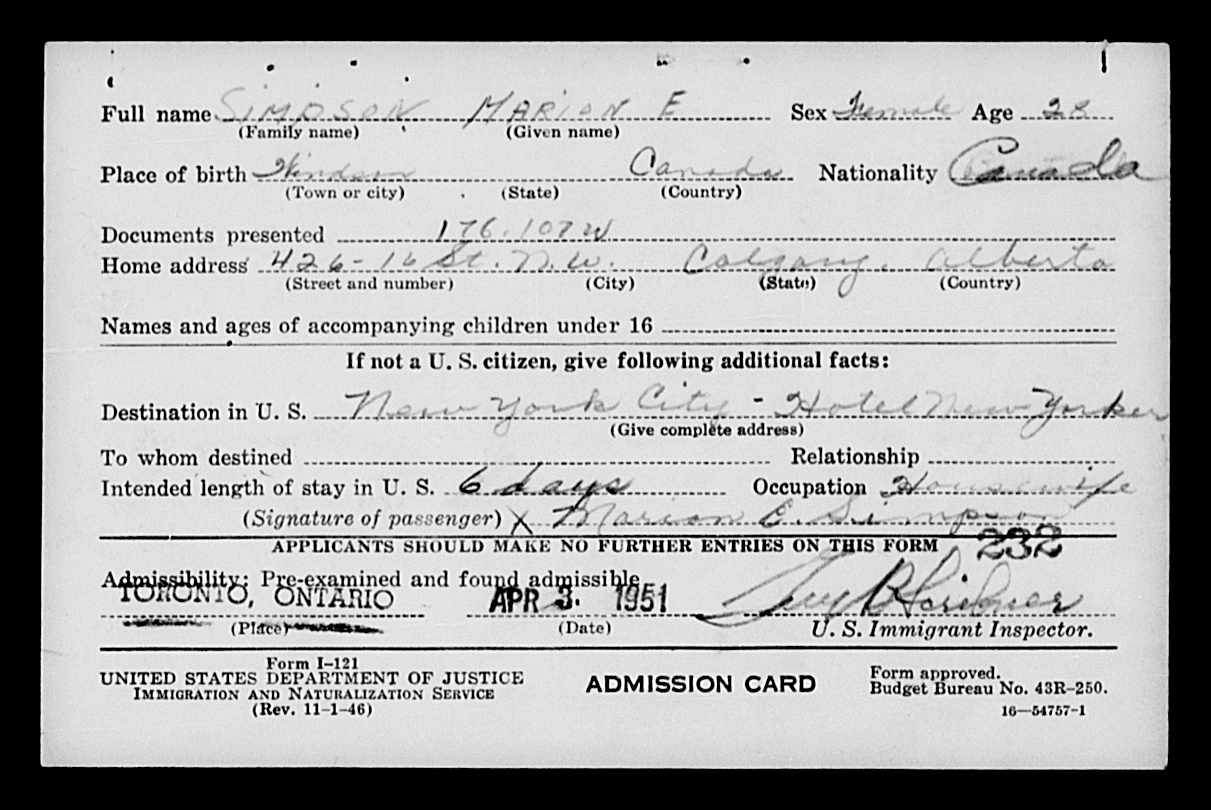 Full name SIMPSON MARION E Sex Female Age 28
(Family name) (Given name)
Place of birth Windsor Canada Nationality Canada
(Town or city) (State) (Country)
Documents presented 176.107 W
Home address 426-16 St. N.W. Calgary, Alberta
(Street and number) (City) (State) (Country)
Names and ages of accompanying children under 16
If not a U. S. citizen, give following additional facts:
Destination in U. S. New York City - Hotel New Yorker
(Give complete address)
To whom destined Relationship
Intended length of stay in U. S. 6 days Occupation Housewife
(Signature of passenger) X Marion E. Simpson
APPLICANTS SHOULD MAKE NO FURTHER ENTRIES ON THIS FORM 232
Admissibility: Pre-examined and found admissible
TORONTO, ONTARIO APR 3. 1951
(Place) (Date) U. S. Immigrant Inspector.
Form I-121
UNITED STATES DEPARTMENT OF JUSTICE
IMMIGRATION AND NATURALIZATION SERVICE
(Rev. 11-1-46)
ADMISSION CARD
Form approved.
Budget Bureau No. 43R-250.
16—54757-1